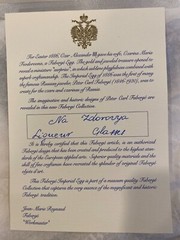 For Easter 1885, Czar Alexander III gave his wife, Czarina Maria
Feodorovna, a Fabergé Egg. The gold and jeweled treasure opened to
reveal a miniature "surprise", in which sublime playfulness combined with
superb craftsmanship. The Imperial Egg of 1885 was the first of many
the famous Russian jeweler, Peter Carl Fabergé (1846-1920), was to
create for the court of Russia.
The imagination and historic designs of Peter Carl Fabergé are
recreated in the new Fabergé Collection.
Na Zdorovya
Liqueur Glasses
It is hereby certified that this Fabergé article, is an authorized
Fabergé design that has been created and produced to the highest stan-
dards of the European applied arts. Superior quality materials and the
skill of fine craftsmen have recreated the splendor of original Fabergé
objets d'art.
This Fabergé Imperial Egg is part of a museum quality Fabergé
Collection that captures the very essence of the magnificent and historic
Fabergé tradition.
Fabergé
"Workmaster"